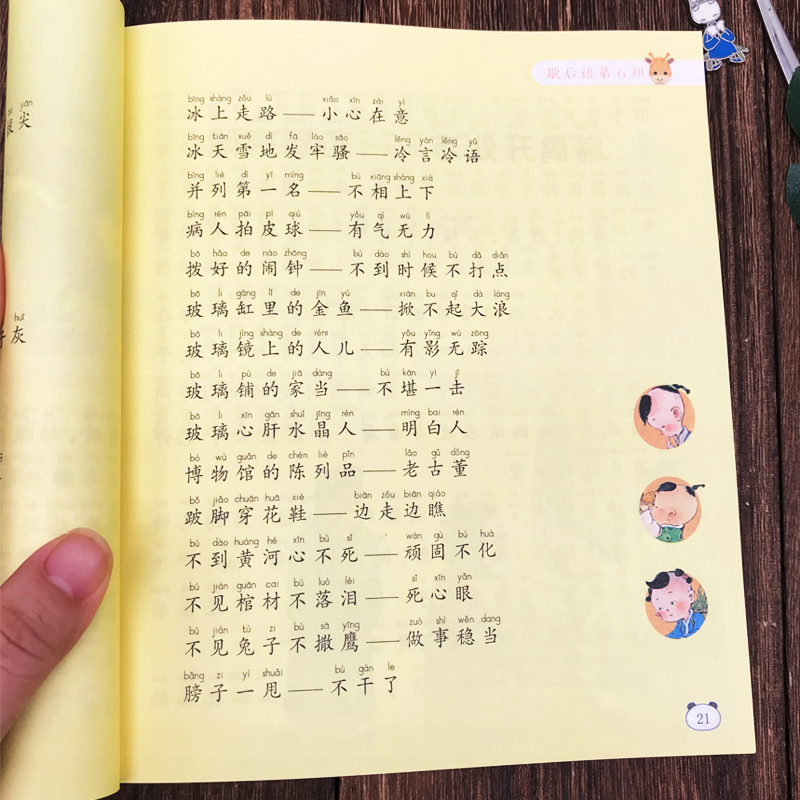 歇后语第6组
bīng shàng zǒu lù xiǎo xīn zài yì
冰上走路——小心在意
bīng tiān xuě dì fā láo sāo lěng yán lěng yǔ
冰天雪地发牢骚——冷言冷语
bìng liè dì yī míng bù xiāng shàng xià
并列第一名——不相上下
bìng rén pāi pí qiú yǒu qì wú lì
病人拍皮球——有气无力
bō hǎo de nào zhōng bú dào shí hou bù dǎ diǎn
拨好的闹钟——不到时候不打点
bō li gāng lǐ de jīn yú xiān bu qǐ dà làng
玻璃缸里的金鱼——掀不起大浪
bō li jìng shàng de rénr yǒu yǐng wú zōng
玻璃镜上的人儿——有影无踪
bō li pù de jiā dàng bù kān yì jī
玻璃铺的家当——不堪一击
bō li xīn gān shuǐ jīng rén míng bai rén
玻璃心肝水晶人——明白人
bó wù guǎn de chén liè pǐn lǎo gǔ dǒng
博物馆的陈列品——老古董
bǒ jiǎo chuān huā xié biān zǒu biān qiáo
跛脚穿花鞋——边走边瞧
bú dào huáng hé xīn bù sǐ wán gù bú huà
不到黄河心不死——顽固不化
bú jiàn guān cai bú luò lèi sǐ xīn yǎn
不见棺材不落泪——死心眼
bú jiàn tù zi bù sā yīng zuò shì wěn dang
不见兔子不撒鹰——做事稳当
bǎng zi yì shuǎi bú gàn le
膀子一甩——不干了
21
jiān
尖
huī
灰